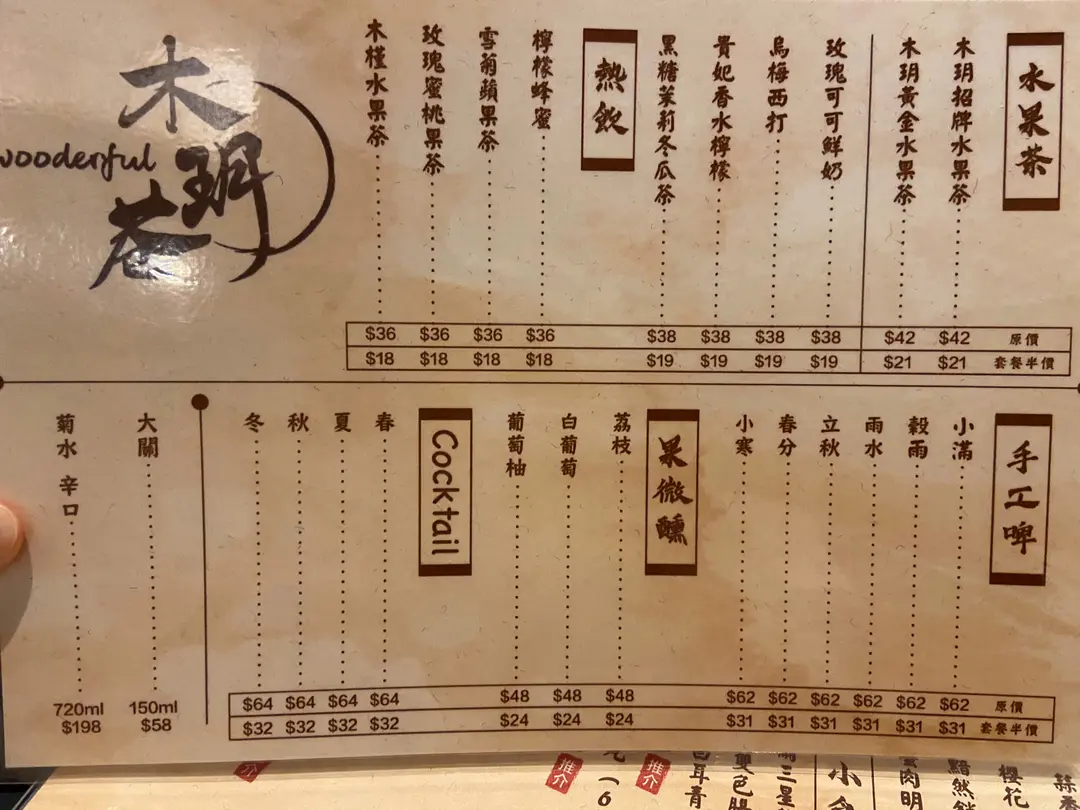 水果茶
木玥招牌水果茶 $42 $21
木玥黃金水果茶 $42 $21
原價
套餐半價
玫瑰可可鮮奶 $38 $19
烏梅西打 $38 $19
貴妃香水檸檬 $38 $19
黑糖茉莉冬瓜茶 $38 $19
熱飲
檸檬蜂蜜 $36 $18
雪菊蘋果茶 $36 $18
玫瑰蜜桃果茶 $36 $18
木槿水果茶 $36 $18
木玥巷
wooderful
手工啤
小滿 $62 $31
穀雨 $62 $31
雨水 $62 $31
立秋 $62 $31
春分 $62 $31
小寒 $62 $31
原價
套餐半價
果微醺
荔枝 $48 $24
白葡萄 $48 $24
葡萄柚 $48 $24
Cocktail
春 $64 $32
夏 $64 $32
秋 $64 $32
冬 $64 $32
大關 150ml $58
菊水 辛口 720ml $198
櫻花
黯然
肉明
小
三星
雙色
耳青
推介
(6
推介
介